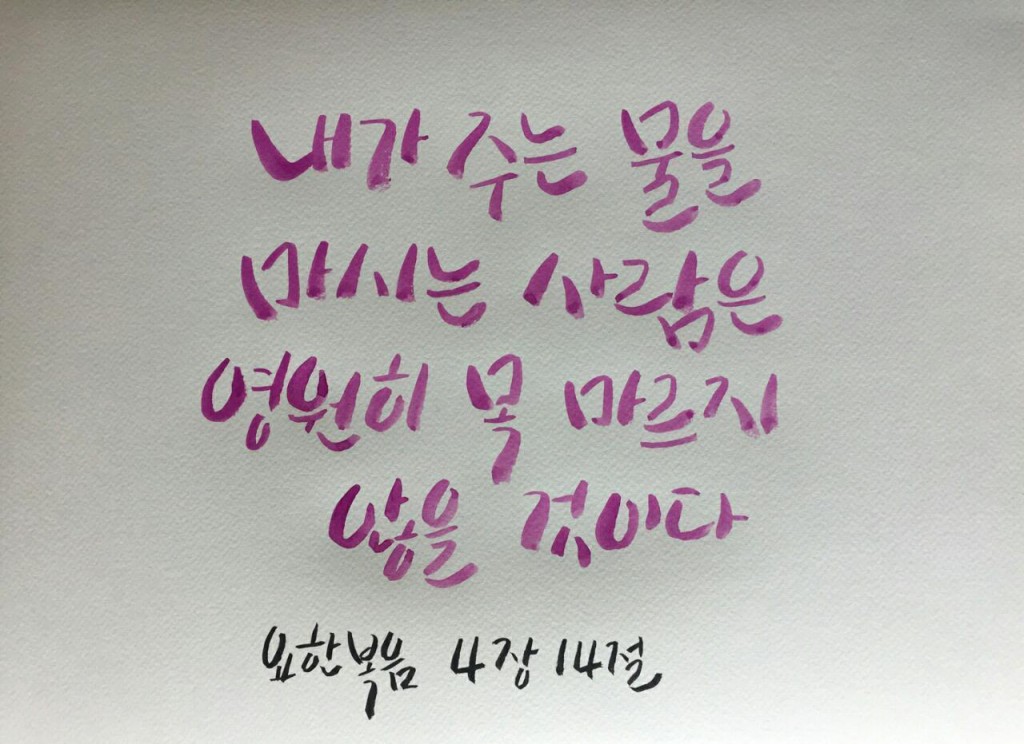 내가 주는 물을
마시는 사람은
영원히 목 마르지
않을 것이다
요한복음 4장 14절